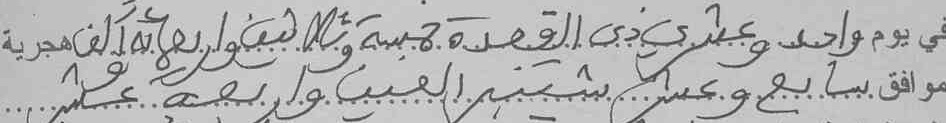 في يوم واحد وعشري ذي القعدة خمسة وثلاثين واربعمائة ألف هجرية
موافق سابع وعشر شتنبر الفين واربعة عشر